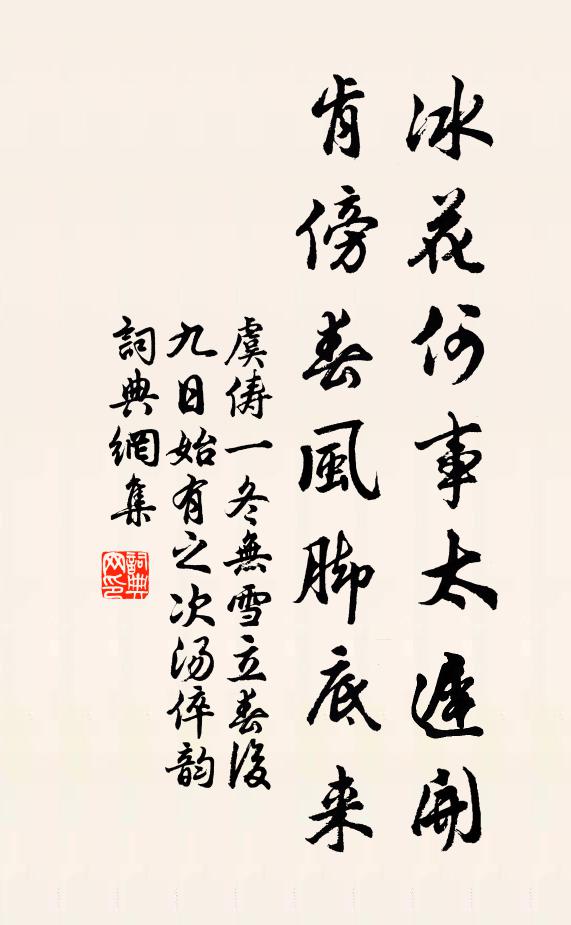 冰花何事太遲開
肯傍春風脚底来
虞儔一冬無雪立春後
九日始有之次汤倅韵
詞典網集
詞典網印